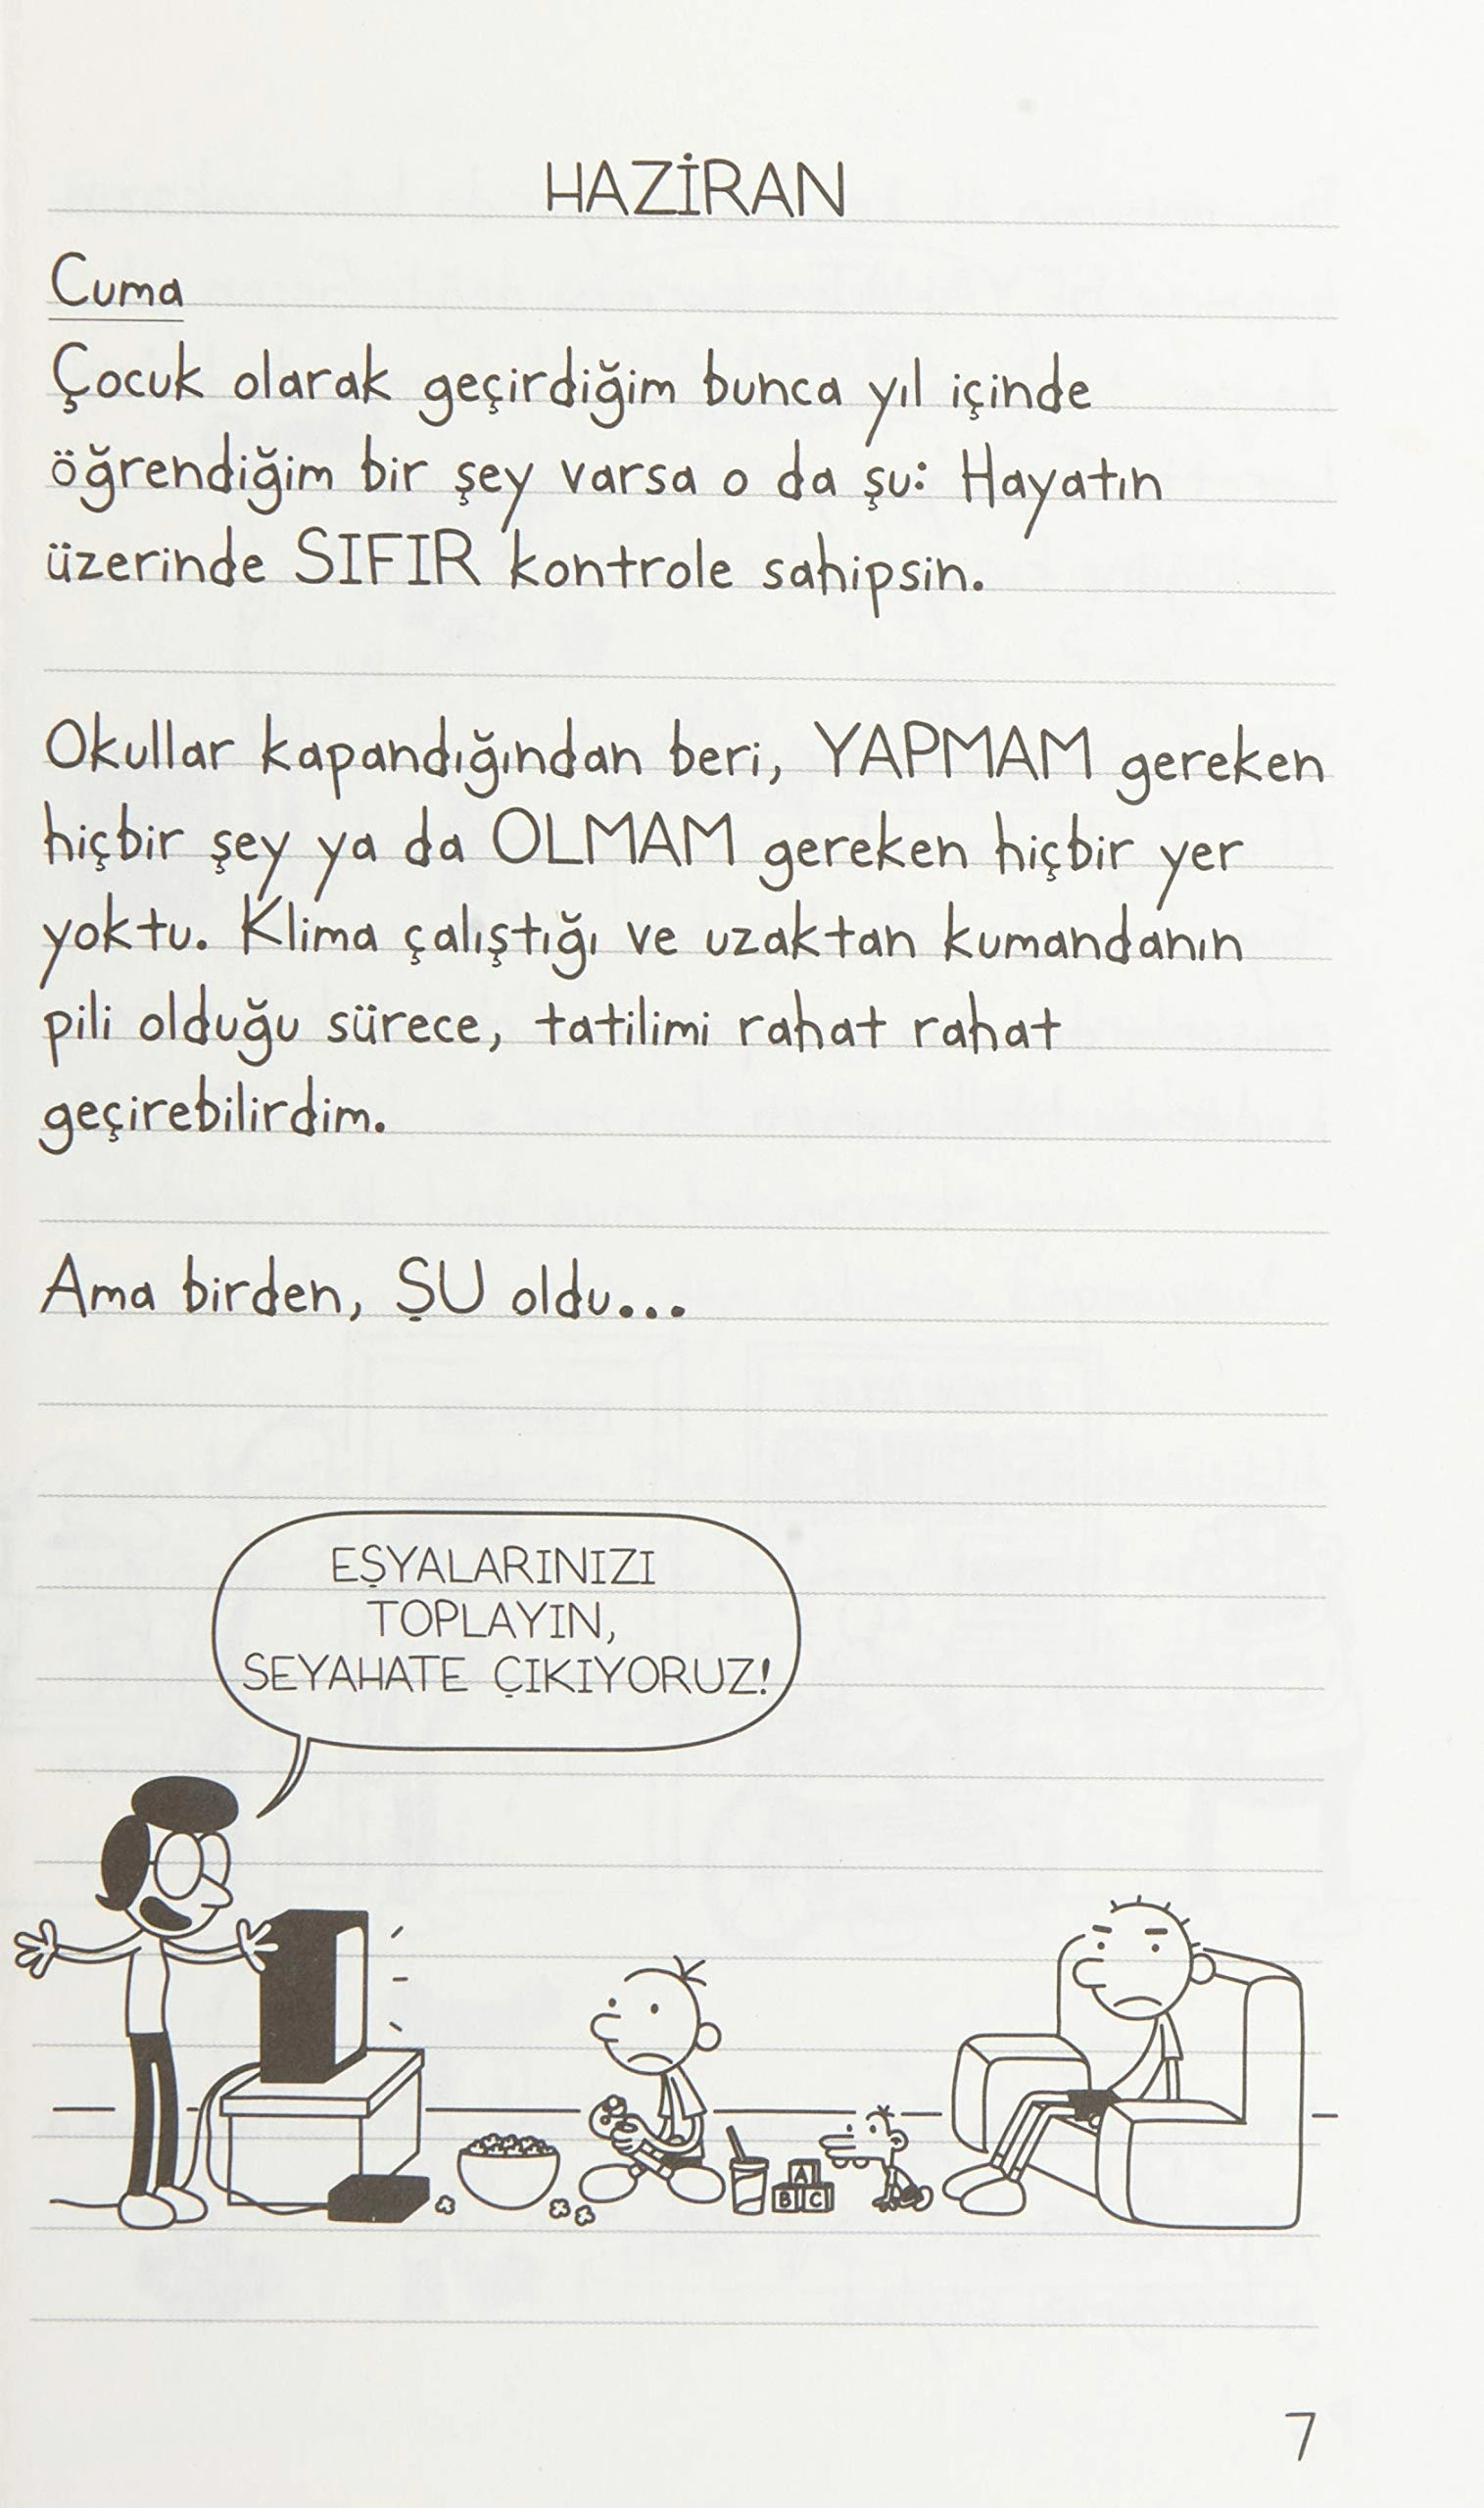 HAZİRAN
Cuma
Çocuk olarak geçirdiğim bunca yıl içinde
öğrendiğim bir şey varsa o da şu: Hayatın
üzerinde SIFIR kontrole sahipsin.
Okullar kapandığından beri, YAPMAM gereken
hiçbir şey ya da OLMAM gereken hiçbir yer
yoktu. Klima çalıştığı ve uzaktan kumandanın
pili olduğu sürece, tatilimi rahat rahat
geçirebilirdim.
Ama birden, ŞU oldu...
EŞYALARINIZI
TOPLAYIN,
SEYAHATE ÇIKIYORUZ!
A
B C
7